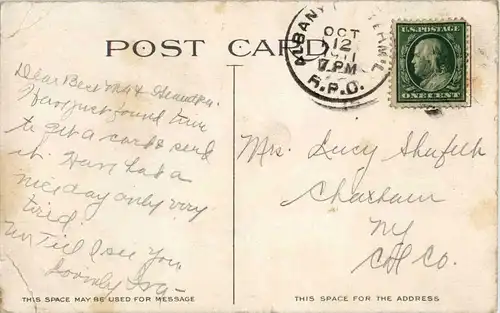 POST CARD
ALBANY
OCT
12
7 PM
R.P.O.
U.S. POSTAGE
ONE CENT
Dear
Have just found time
to get a card & send
it. Have had a
nice day only very
tired.
Till I see you
Lovingly
Mrs. Lucy
Chatham
NY
Col Co.
THIS SPACE MAY BE USED FOR MESSAGE
THIS SPACE IS FOR THE ADDRESS